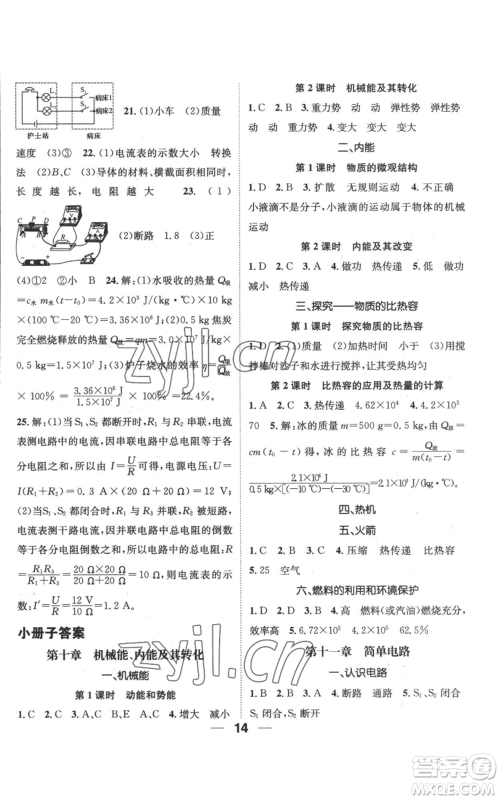 L₁ S₁ 病床1
L₂ S₂ 病床2
护士站 病床
21.(1)小车 (2)质量
速度 (3)③ 22.(1)电流表的示数大小 转换
法 (2)AC (3)导体的材料、横截面积相同时,
长度越长,电阻越大 23.(1)
(2)断路 1.8 (3)正
(4)①2 ②小 B 24.解:(1)水吸收的热量 Q吸
=c水 m水(t-t₀)=4.2×10³ J/(kg·℃)×
10 kg×80 ℃=3.36×10⁶ J (2)0.5 kg 焦炭
完全燃烧放出的热量 Q放=mq=3.0×10⁷ J/kg×
0.5 kg=1.5×10⁷ J (3)炉子烧水的效率 η=Q吸/Q放
=3.36×10⁶ J/1.5×10⁷ J=22.4%
25.解:(1)当 S₁、S₂ 都断开时,R₁ 与 R₂ 串联,电流
表测电路中电流,因串联电路中总电阻等于各
分电阻之和,所以,由 I=U/R 可得,电源电压:U=
I(R₁+R₂)=0.3 A×(20 Ω+20 Ω)=12 V;
(2)当 S₁、S₂ 都闭合时,R₁ 与 R₃ 并联,电流表
测干路电流,因并联电路中总电阻的
倒数等于各分电阻的倒数之和,所以,电路总电阻:R
=R₁R₃/(R₁+R₃)=20 Ω×20 Ω/(20 Ω+20 Ω)=10 Ω,此时电流表的示
数:I′=U/R=12 V/10 Ω=1.2 A
小册子答案
第十章 机械能、内能及其转化
一、机械能
第1课时 动能和势能
1.B 2.A 3.C 4.A 5.C 6.A 7.增大 减小
第2课时 机械能及其转化
1.C 2.B 3.重力势 动 动 弹性势 弹性势
动 动 4.变大 变大 大于
二、内能
第1课时 物质的微观结构
1.D 2.B 3.扩散 无规则运动 4.不正确
小液滴不是分子,小液滴的运动属于物体的机械
运动
第2课时 内能及其改变
1.D 2.C 3.A 4.做功 热传递 5.低 做功
热传递
三、探究——物质的比热容
第1课时 探究物质的比热容
1.A 2.B 3.D 4.(2)加热时间 (3)用搅
拌棒对沙子和水进行搅拌,使其受热均匀
第2课时 比热容的应用及热量的计算
1.A 2.C 3.热传递 4.62×10⁴ 4.2×10³
70 5.解:冰的质量 m=500 g=0.5 kg,由 Q放=
cm(t₀-t)得,冰的比热容 c=Q放/m(t₀-t)=
2.1×10⁴ J/0.5 kg×[(-10 ℃)-(-30 ℃)]=2.1×10³ J/(kg·℃)
四、热机
五、火箭
1.B 2.C 3.C 4.压缩 热传递 比热容
5.25 空气
六、燃料的利用和环境保护
1.D 2.B 3.高 燃料(或汽油)燃烧充分,
效率高 5.1.38×10⁸ 62.5%
第十一章 简单电路
一、认识电路
1.D 2.C 3.A 4.断路 通路 5.S₁ 断开,
S₂ 闭合 S₂ 断开,S₁ 闭合 S₁ 闭合,S₂ 闭合
S₁ 闭合,S₂ 断开
14
zyjl.cn
zyjl.cn